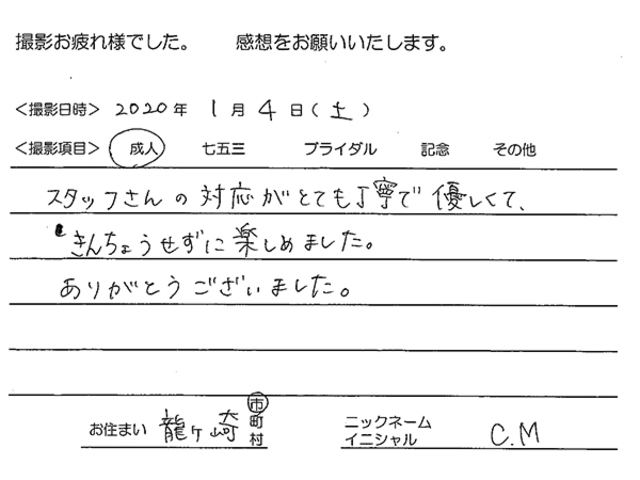 撮影お疲れ様でした。 感想をお願いいたします。
<撮影日時> 2020年 1月 4日(土)
<撮影項目> 成人 七五三 ブライダル 記念 その他
スタッフさんの対応がとても丁寧で優しくて、
きんちょうせずに楽しめました。
ありがとうございました。
お住まい 龍ヶ崎 市町村
ニックネーム イニシャル C.M